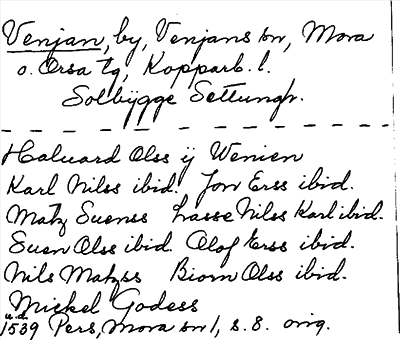 Venjan, by, Venjans sn, Mora
o. Orsa tg, Kopparb. l.
Solbygge Settungh.
Haluard Olss ij Wenien
Karl Nilss ibid. Jon Erss ibid.
Matz Suenss Lasse Nilss Karl ibid.
Suen Olss ibid. Olof Erss ibid.
Nils Matzss Biorn Olss ibid.
Mickel Godess
u.d.
1539 Pers, Mora sn 1, s. 8. orig.